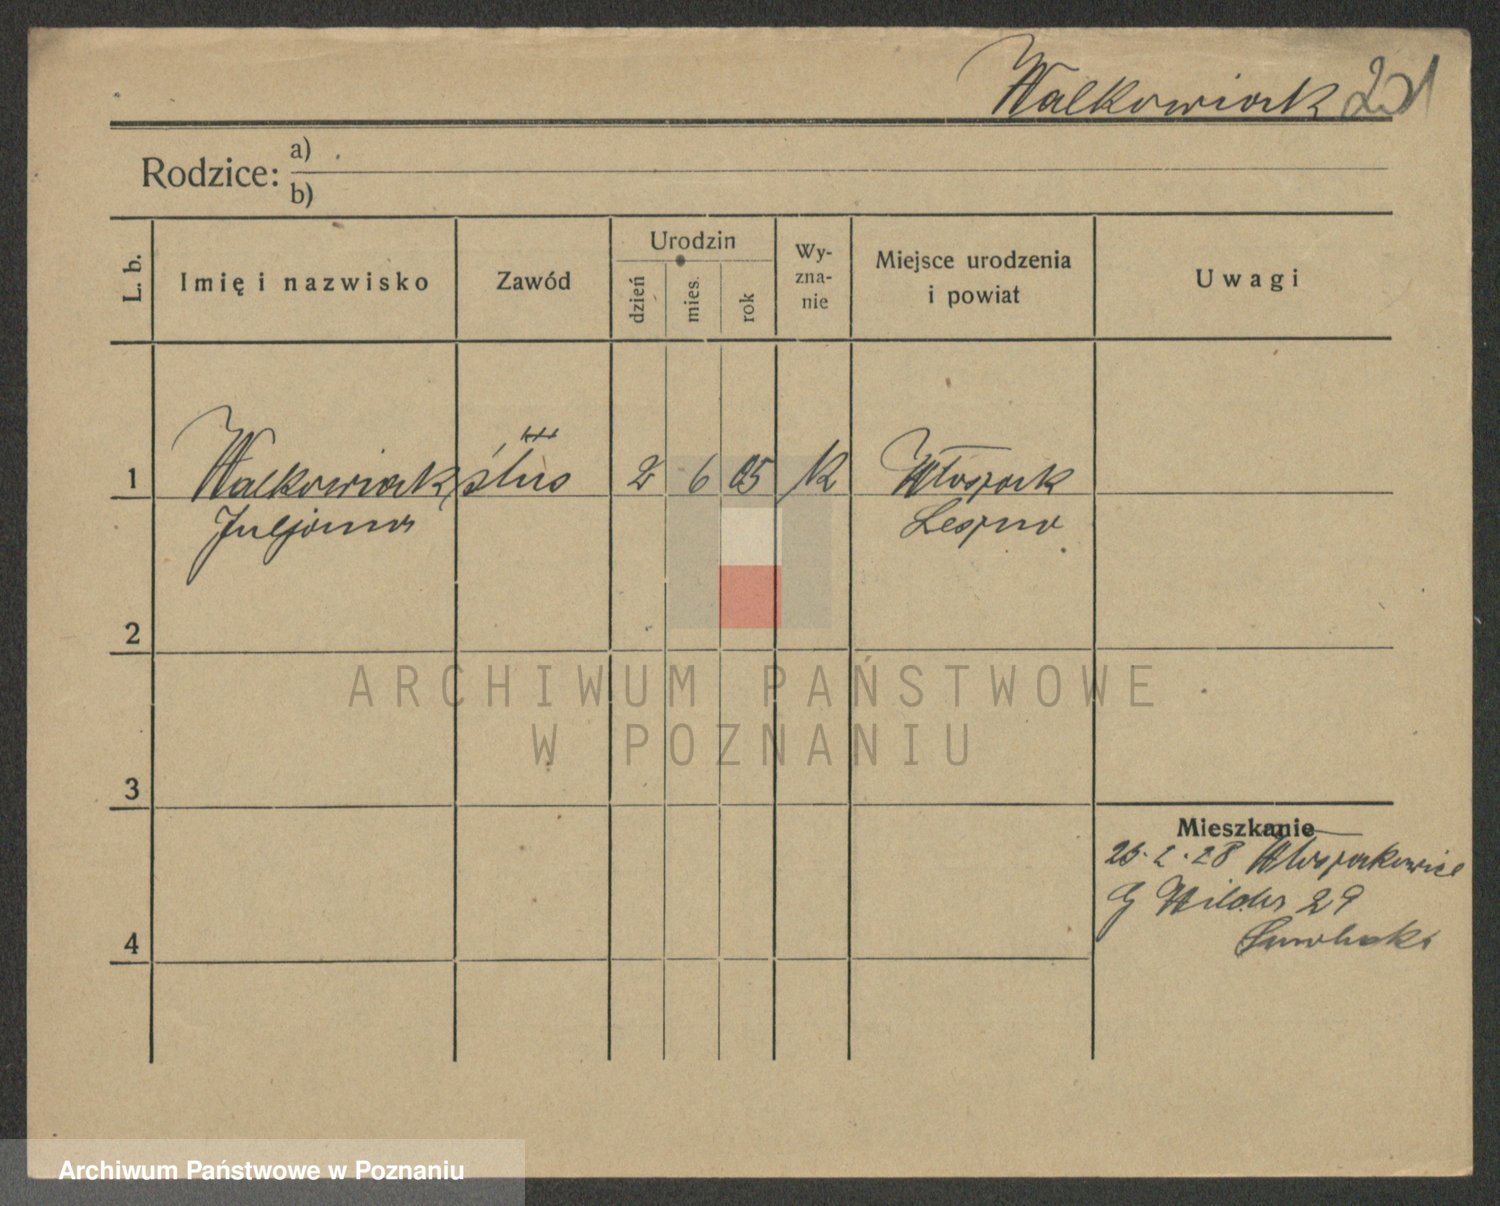 Walkowiak 21
Rodzice: a)
b)
L. b.
Imię i nazwisko
Zawód
Urodzin
dzień
mies.
rok
Wy-
zna-
nie
Miejsce urodzenia
i powiat
Uwagi
1 Walkowiak ślus 2 6 05 k Włoszak
Juljan Leszno
2
3
4
Mieszkanie
25.2.28 Włoszakowice
G Wilda 29
ARCHIWUM PAŃSTWOWE
W POZNANIU
Archiwum Państwowe w Poznaniu